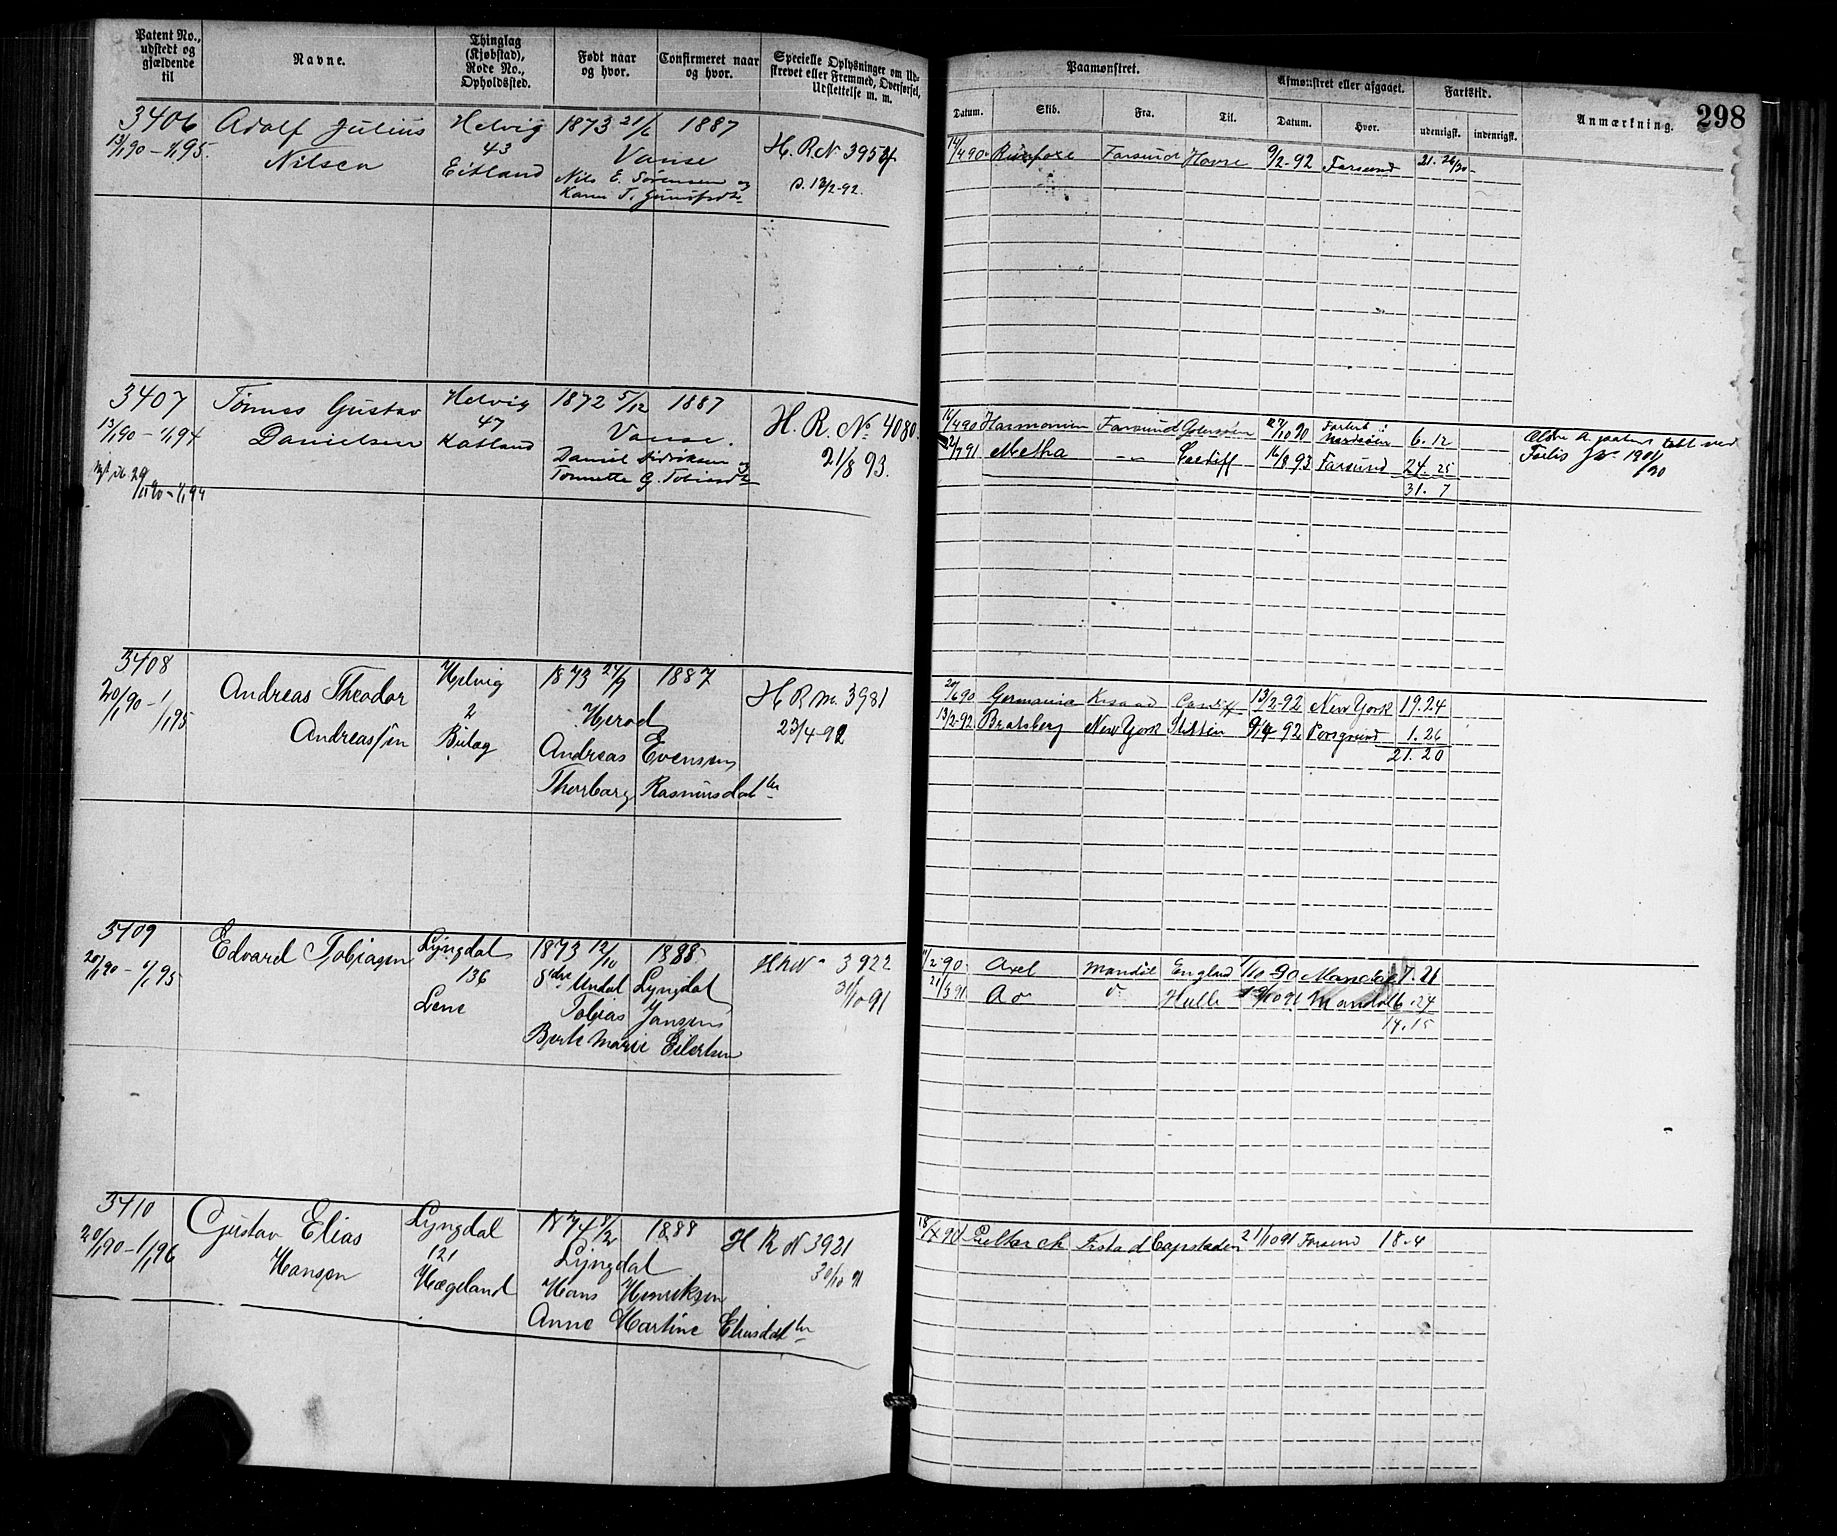 Patent No., udstedt og gjældende til
Navne.
Thinglag (Kjøbstad), Rode No., Opholdssted.
Født naar og hvor.
Confirmeret naar og hvor.
Specielle Oplysninger om Udskrevet eller Fremmed, Overførsel, Udslettelse m. m.
Paamønstret.
Afmønstret eller afgaaet.
Fartstid.
Anmærkning.
298
Datum. Skib. Fra. Til. Datum. Hvor. udenrigsk. indenrigsk.
3406 Adolf Julius Helvig 1873 21/6 1887
13/1 90 - 1/1 95. Nilsen 43 Vanse H. R N 3954
Eitland Nils E. Sørensen og
Karen T. d. 13/2-92.
14/4 90 Farsund Havre 9/2-92 Farsund 21. 26/30
3407 Tönnes Gustav Helvig 1872 5/12 1887
13/1 90 - 1/1 94 Danielsen 47 Vanse. H. R. No. 4080.
Kalland Daniel Didriksen og 21/8 93.
29/11 90 - 1/1 94 Tonnette G. Tobiasd
16/4 90 Harmonien Farsund 27/10 90 Forlist i Nordsøen 6. 12
21/7 91 Metha -"- Cardiff 16/8 93 Farsund 24. 25
31. 7
Forlis
3408 Andreas Theodor Helvig 1873 24/9 1887
20/1 90 - 1/1 95 Andreassen 2 Herad H R No. 3981
Andreas Evensen 23/4-92
Thorborg Rasmusdatter
20/6 90 Germania Krsand Cardiff 13/2-92 New York 19. 24
13/2-92 Bratsberg New York Stettin 9/4-92 Porsgrund 1. 26
21. 20
3409 Edvard Tobiasen Lyngdal 1873 12/10 1888
20/1 90 - 1/1 95 136 Undal Lyngdal H R N 3922
Lene Tobias Jansen 31/10 91
Berte Marie Eilertsen
11/2-90 Axel Mandal England 1/10-90 Mandal 7. 21
21/3 91 Do Do Hull 19/10 91 Mandal 6. 24
14. 15
3410 Gustav Elias Lyngdal 1874 1888
20/1 90 - 1/1 96 Hansen 121 Lyngdal H R N 3921
Hægeland Hans Henriksen 30/10 91
Anne Martine Eliasdatter
21/10 91 Farsund 18. 4